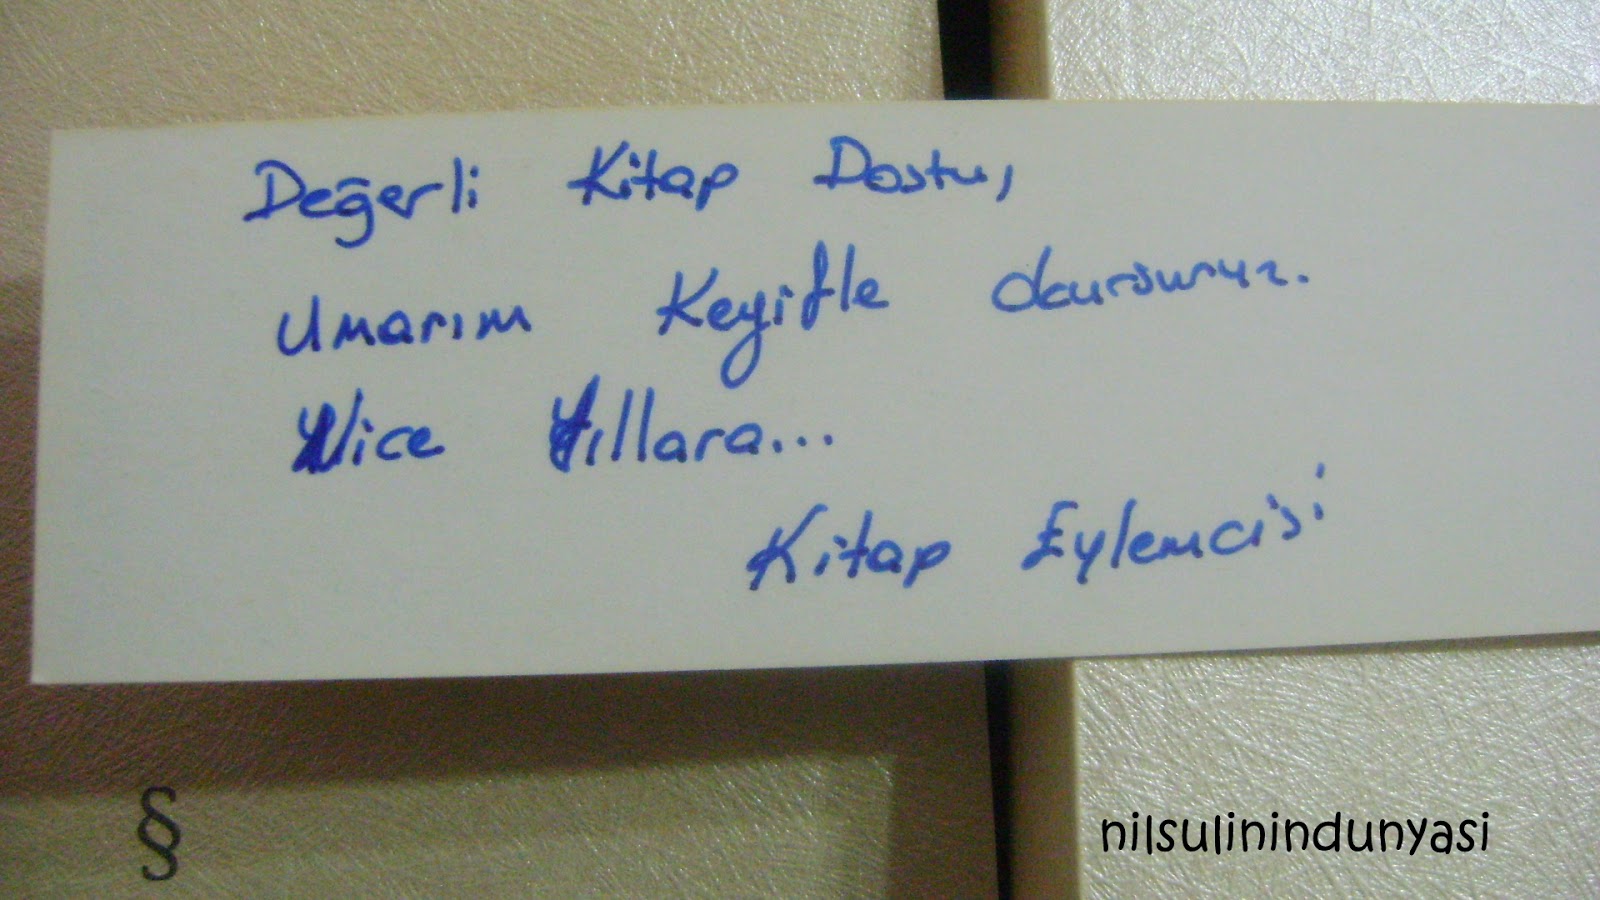 Değerli Kitap Dostu,
Umarım Keyifle Okursunuz.
Nice Yıllara...
Kitap Eylemcisi
§
nilsulinindunyasi